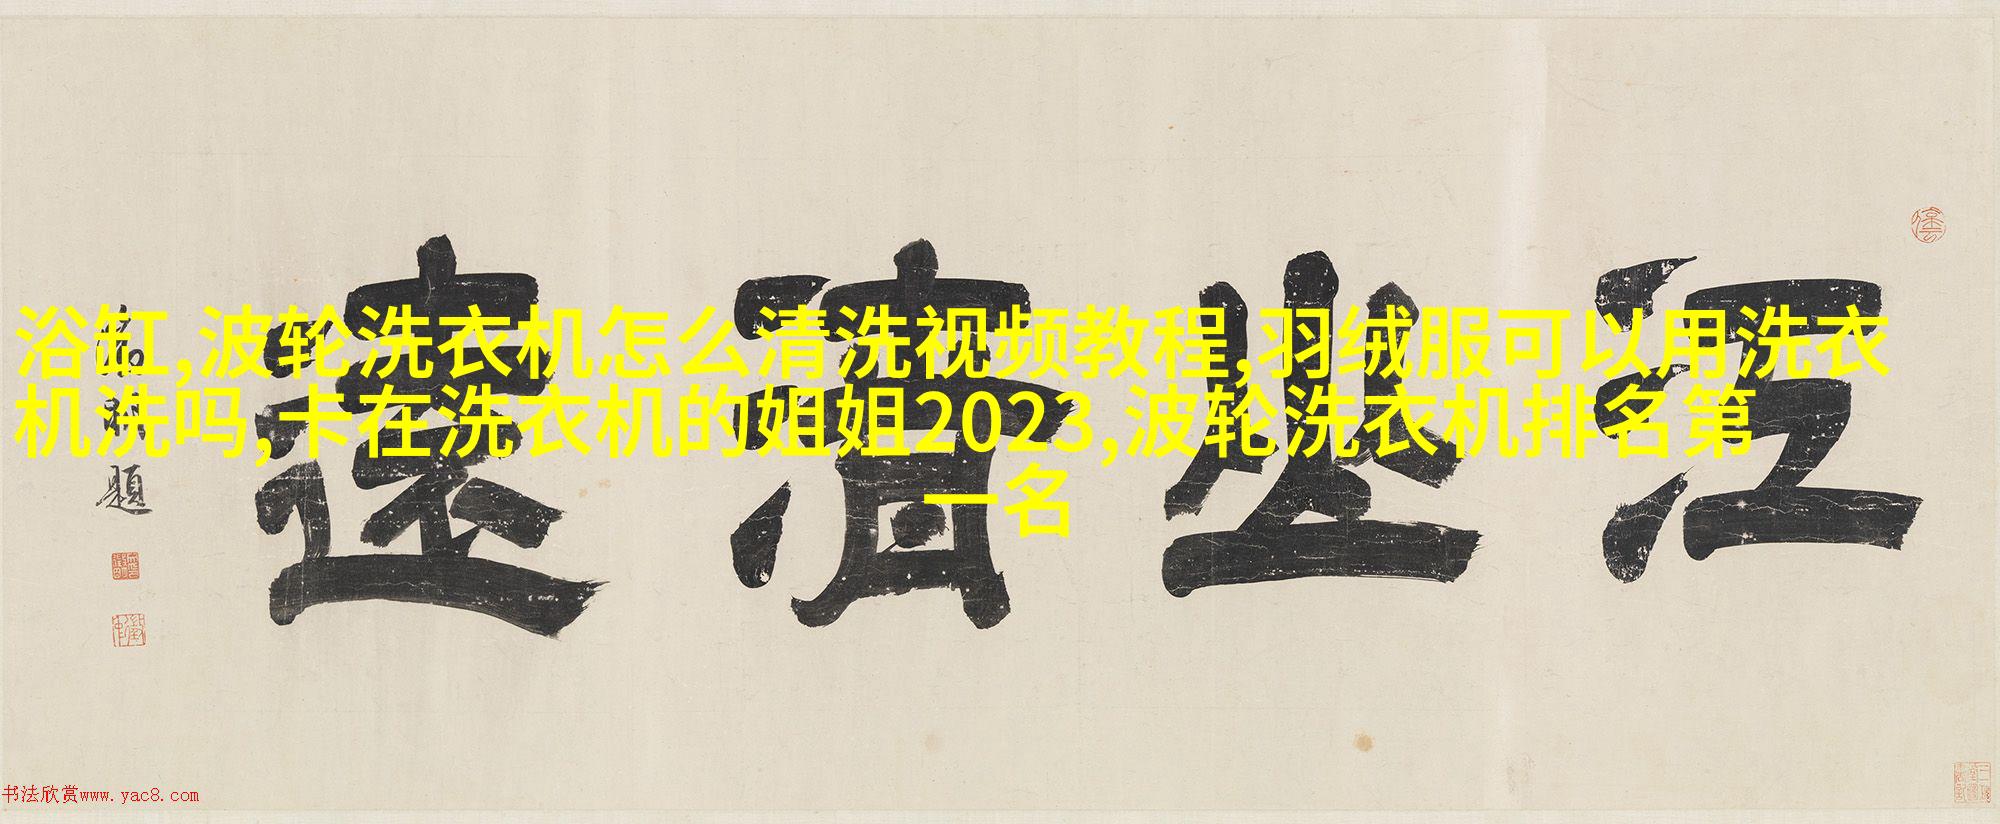 浴缸,波轮洗衣机怎么清洗视频教程,羽绒服可以用洗衣
机洗吗,卡在洗衣机的姐姐2023,波轮洗衣机排名第
一名
江山清遠
題
书法欣赏www.yac8.com